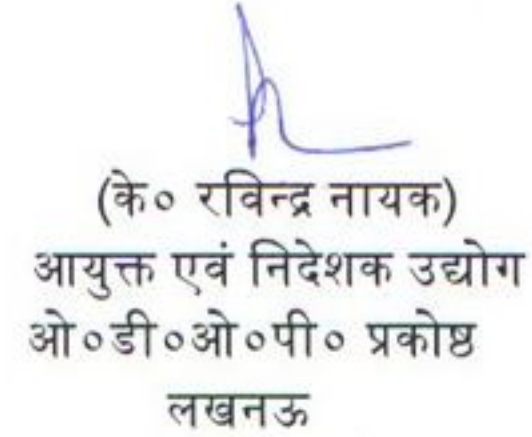 (के० रविन्द्र नायक)
आयुक्त एवं निदेशक उद्योग
ओ०डी०ओ०पी० प्रकोष्ठ
लखनऊ